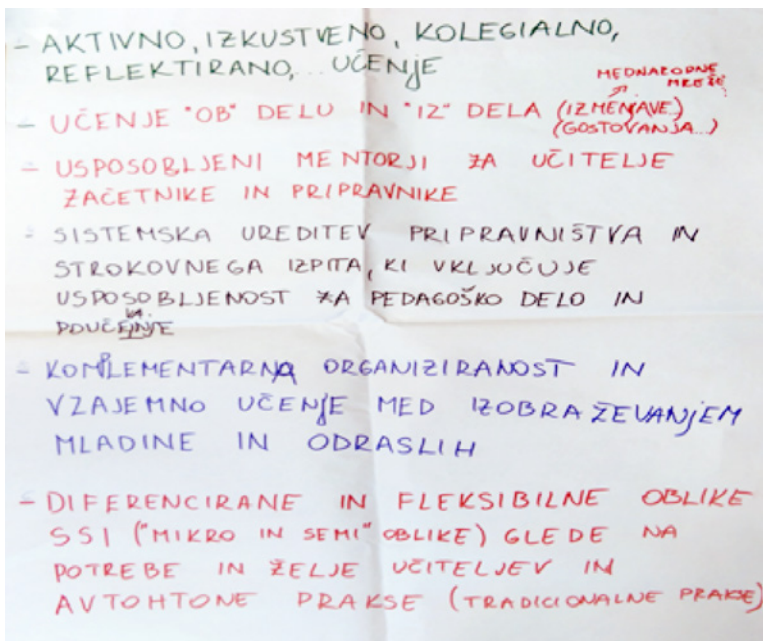 - AKTIVNO, IZKUSTVENO, KOLEGIALNO,
REFLEKTIRANO,... UČENJE
MEDNARODNE
MREŽE
- UČENJE "OB" DELU IN "IZ" DELA (IZMENJAVE)
(GOSTOVANJA...)
- USPOSOBLJENI MENTORJI ZA UČITELJE
ZAČETNIKE IN PRIPRAVNIKE
- SISTEMSKA UREDITEV PRIPRAVNIŠTVA IN
STROKOVNEGA IZPITA, KI VKLJUČUJE
USPOSOBLJENOST ZA PEDAGOŠKO DELO IN
POUČEVANJE
- KOMPLEMENTARNA ORGANIZIRANOST IN
VZAJEMNO UČENJE MED IZOBRAŽEVANJEM
MLADINE IN ODRASLIH
- DIFERENCIRANE IN FLEKSIBILNE OBLIKE
SSI ("MIKRO IN SEMI" OBLIKE) GLEDE NA
POTREBE IN ŽELJE UČITELJEV IN
AVTOHTONE PRAKSE (TRADICIONALNE PRAKSE)